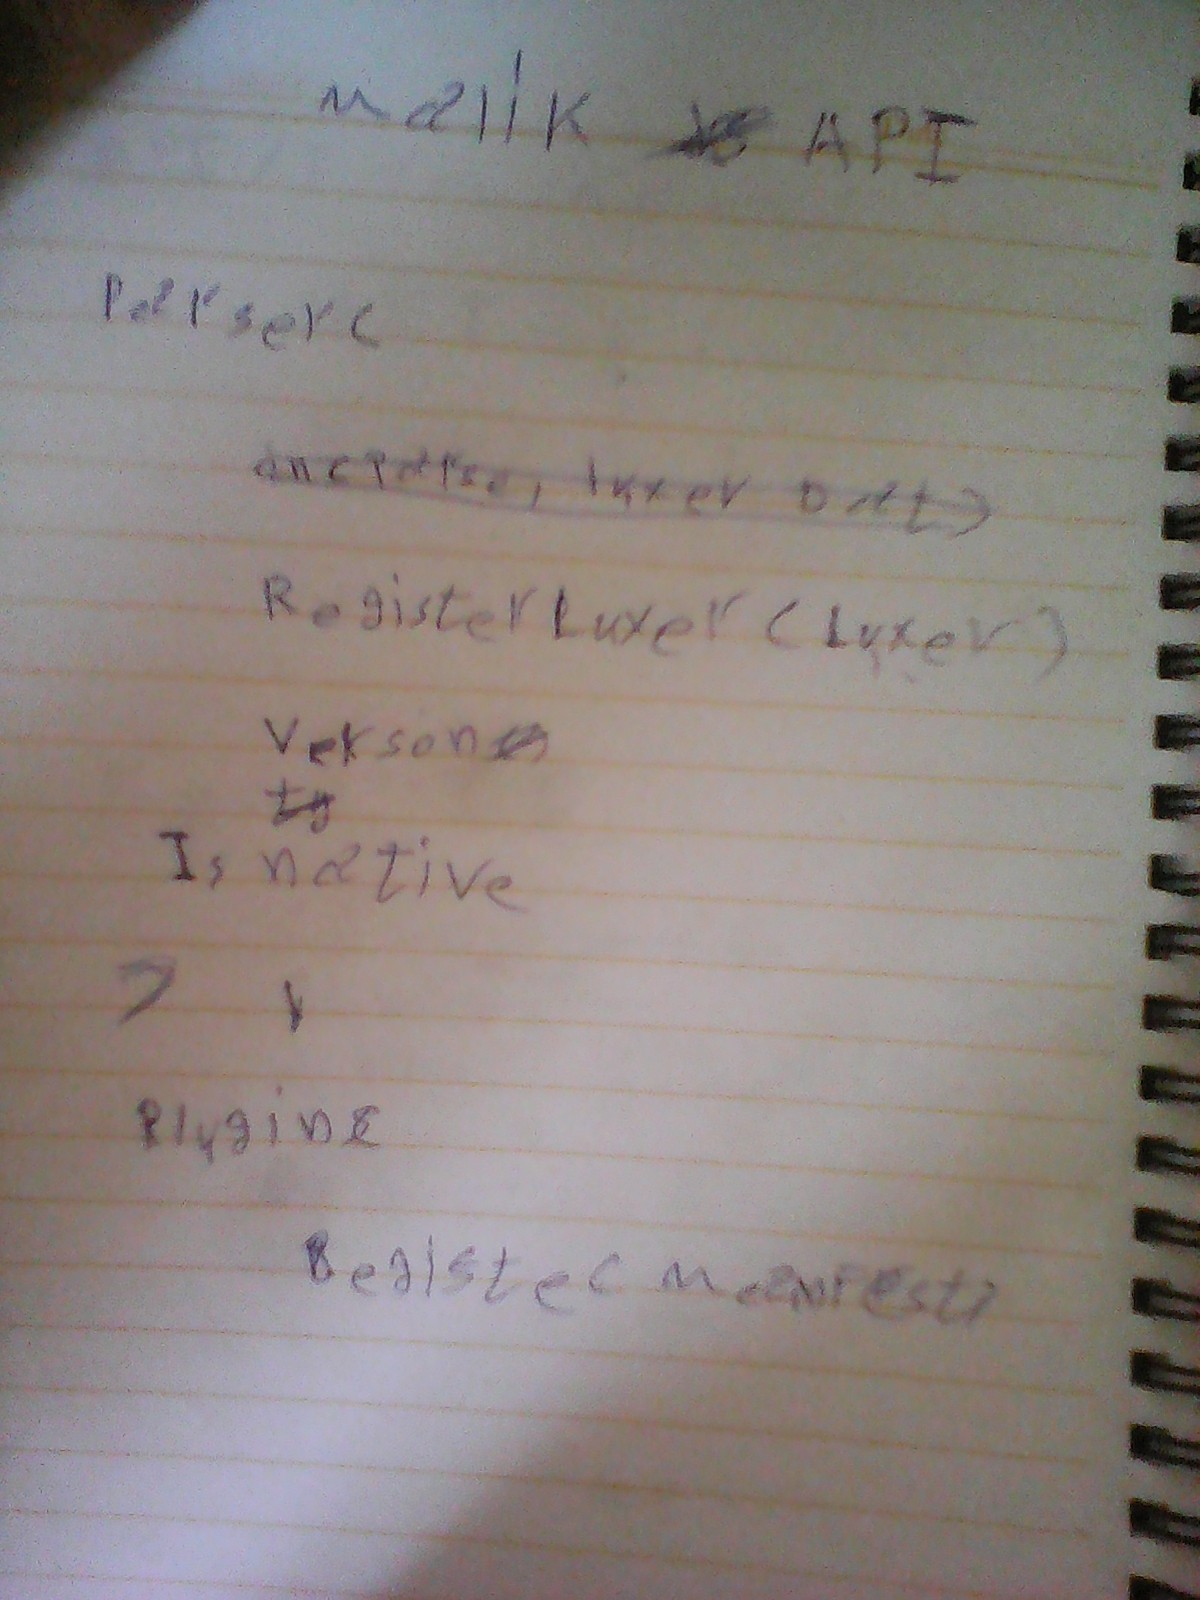 Malik API
Parser (
RegisterLuxer (Luxer)
Verson
Is native
)
Plugins
Register Manifest